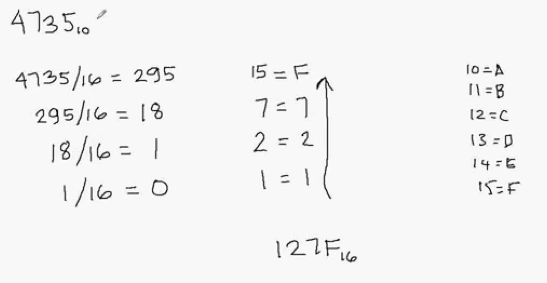 4735₁₀
4735/16 = 295
295/16 = 18
18/16 = 1
1/16 = 0
15 = F
7 = 7
2 = 2
1 = 1
127F₁₆
10=A
11=B
12=C
13=D
14=E
15=F